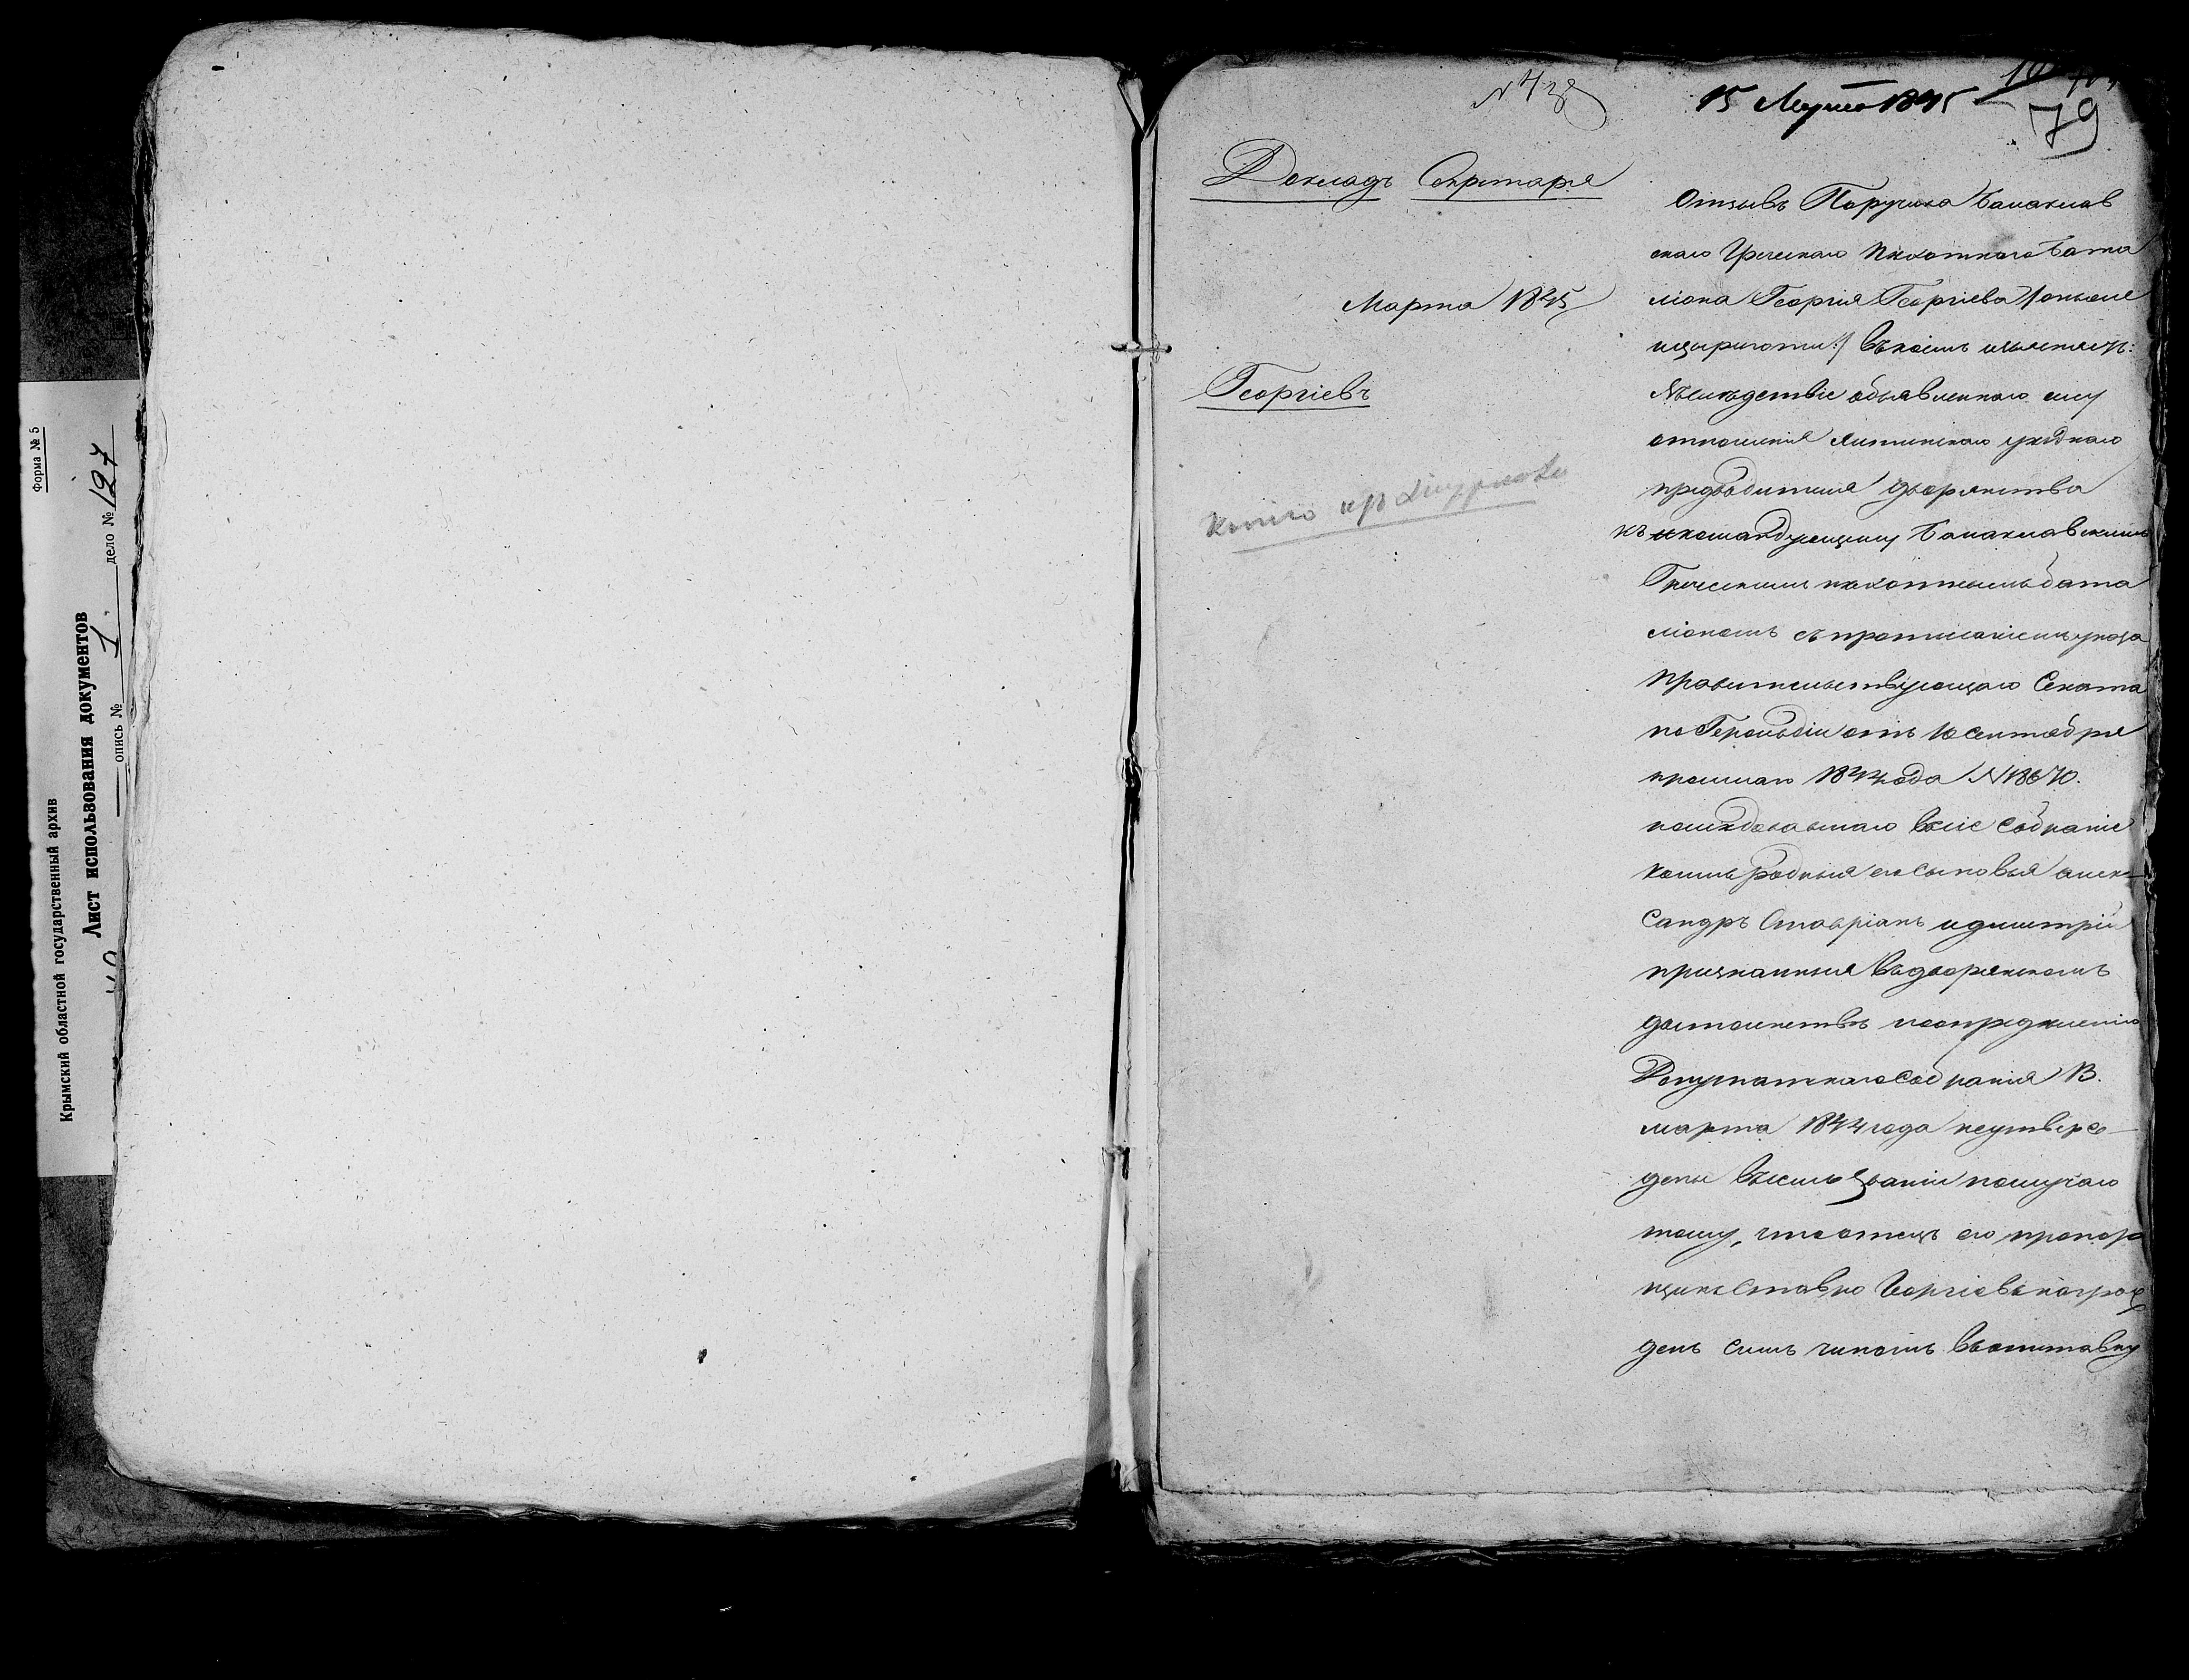 Форма № 5
Крымский областной государственный архив
Лист использования документов
опись № 1 дело № 127
15 Марта 1845
79
Докладъ Секретаря
Марта 1845
Георгіевъ
Отзывъ Поручика Балаклав
скаго Греческаго пѣхотнаго бата
ліона Георгія Георгіева /онъ же
въ коемъ изъясняетъ:
Въ слѣдствіе объявленнаго ему
отношенія Ялтинскаго уѣзднаго
предводителя дворянства
къ командующему Балаклавскимъ
Греческимъ пѣхотнымъ бата
ліономъ съ прописаніемъ указа
Правительствующаго Сената
по Герольдіи отъ 10 Сентября
прошлаго 1844 года N 18670.
послѣдовавшаго въ сіе Собраніе
коимъ родныя его сыновья Алек-
сандръ Ставріанъ и Дмитрій
признанныя въ дворянскомъ
достоинствѣ по опредѣленію
Депутатскаго Собранія 13.
марта 1844 года неутверж-
дены въ семъ званіи по случаю
тому, что отецъ его прапор
щикъ Ставро Георгіевъ награж
денъ симъ чиномъ въ отставку